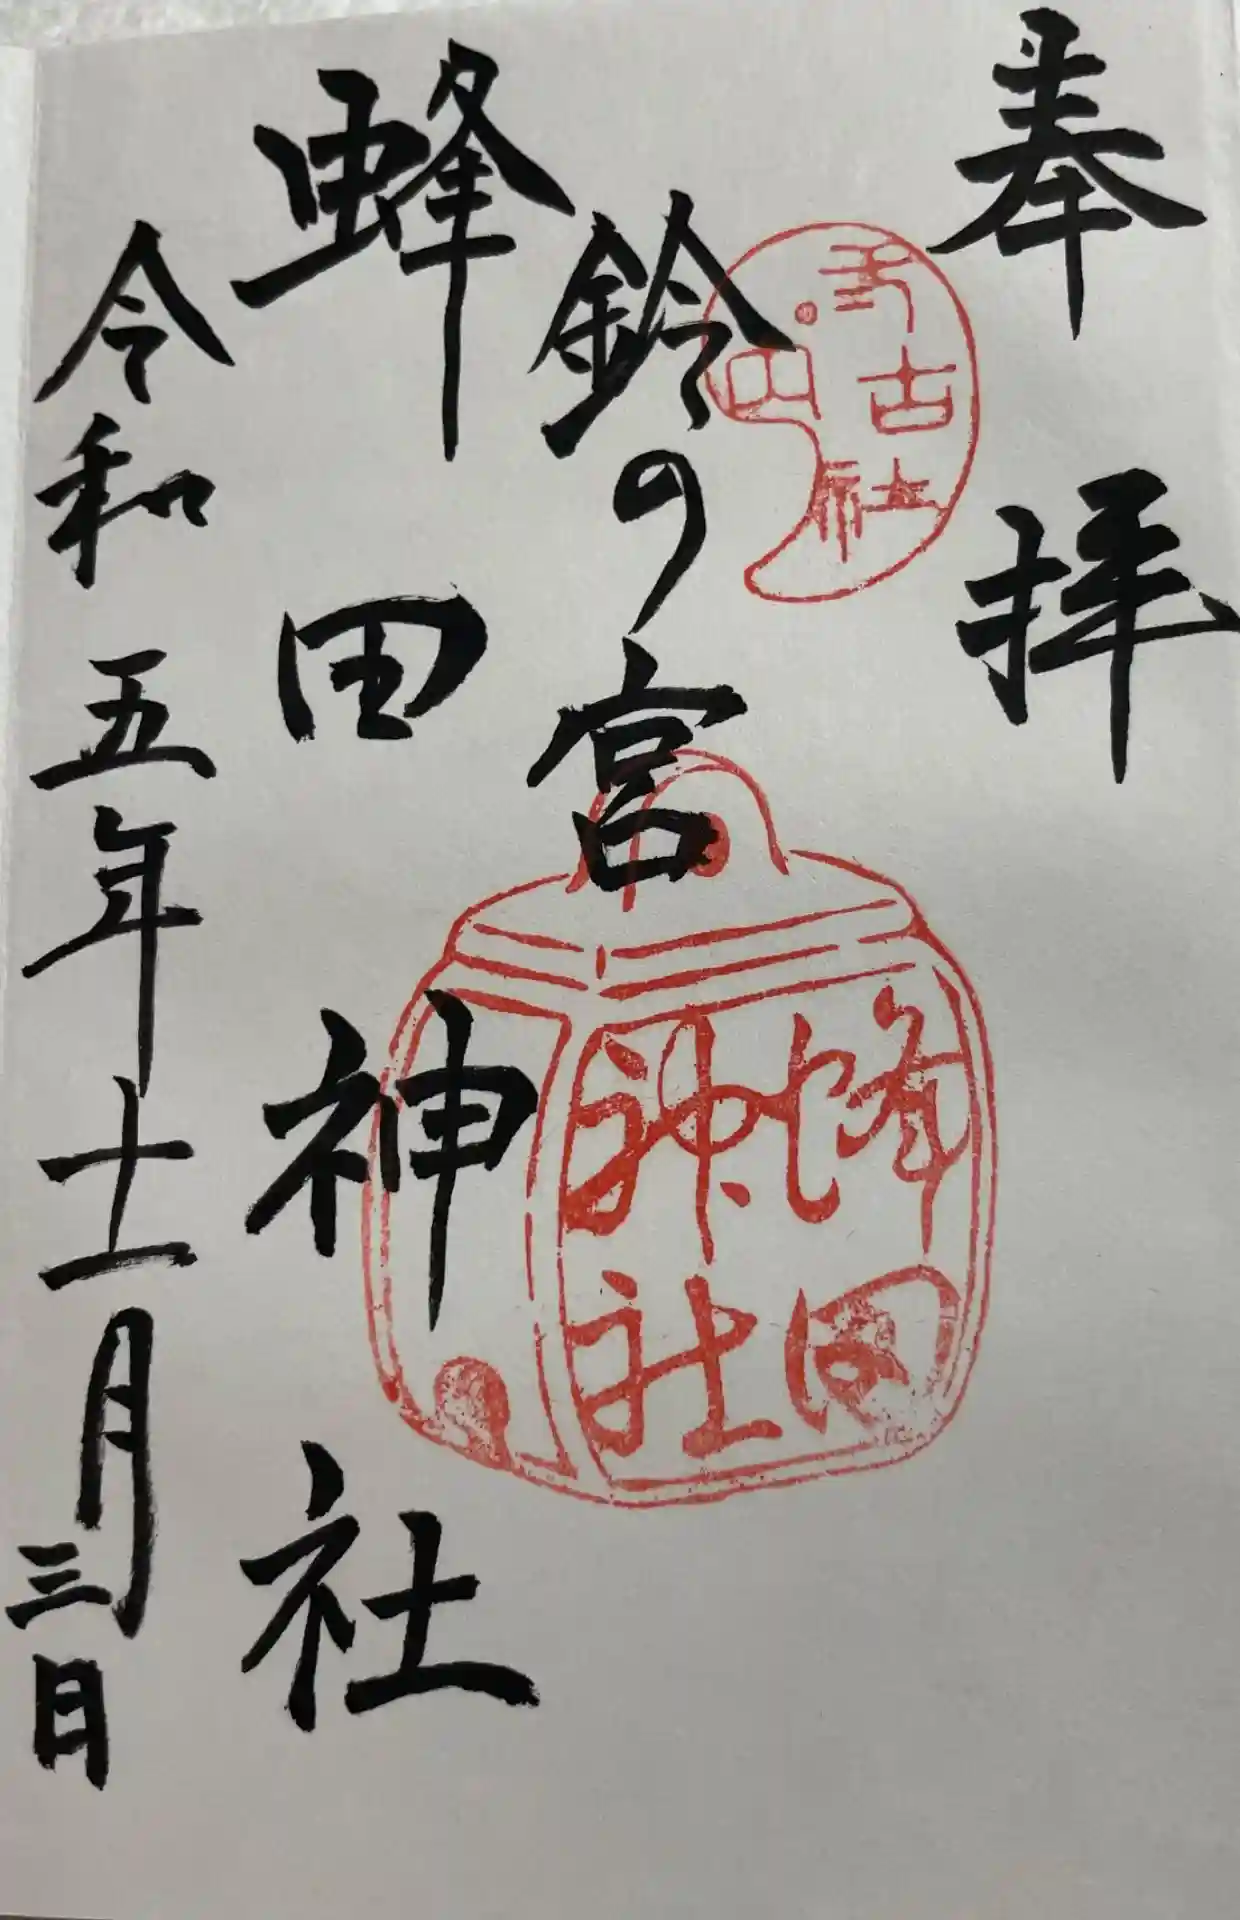 奉拝
古社
鈴の宮
蜂田
神社
蜂田神社
令和五年十一月三日